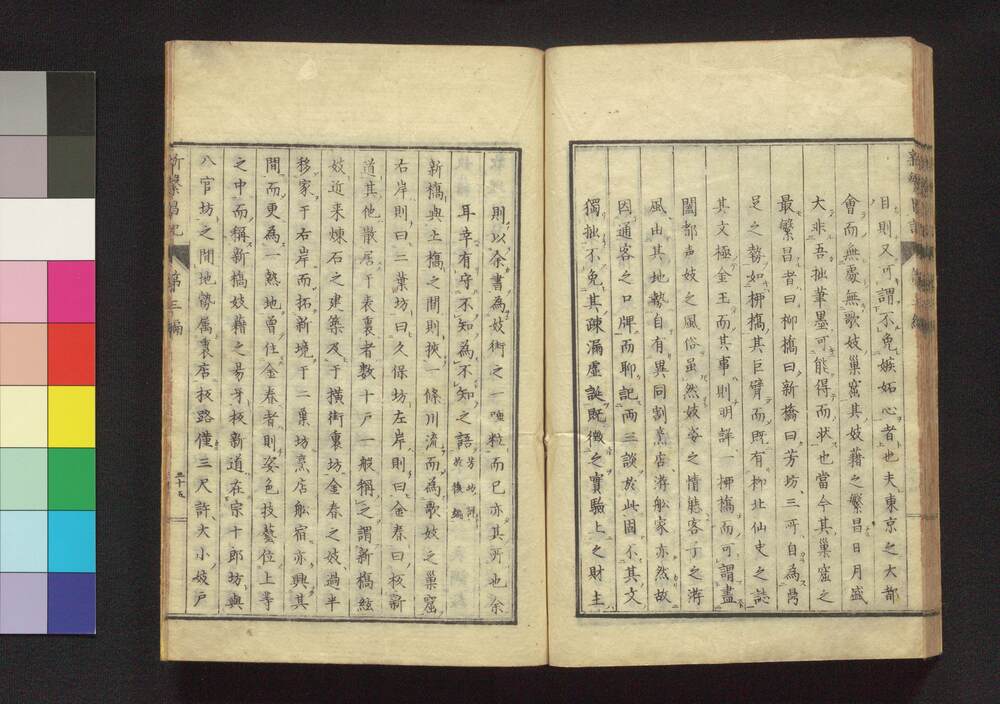 目則又可謂不免嫉妬心者也夫東京之大都
會而無處無歌妓巢窟其妓藉之繁昌日月盛
大非吾拙筆墨可能得而状也當今其巢窟之
最繁昌者曰柳橋曰新橋曰芳坊三所自為
足之勢如柳橋其巨臂而既有柳北仙史之誌
其文極金玉而其事則明詳一柳橋而可謂盡
闔都声妓之風俗虽然妓姿之情態客丁之游
風由其地勢自有異同割烹店游舩家亦然故
因通客之口牌而聊記両三談於此固不其文
獨拙不免其疎漏虚誕既徴之實驗上之財主
則以余書為妓街之一唾粒而已亦其所也余
耳幸有守不知為不知之語芳坊詳於後編
新橋與土橋之間則挾一條川流而為歌妓之巢窟
右岸則曰二葉坊曰久保坊左岸則曰金春曰板新
道其他散居于表裏者數十戸一般稱之謂新橋絃
妓近来煉石之建築及于横街裏坊金春之妓過半
移家于右岸而拓新境于二巢坊烹店舩宿亦興其
間而更為一熱地曽住金春者則姿色技藝位上等
之中而稱新橋妓藉之易牙板新道在宗十郎坊與
八官坊之間地勢属裏店板路僅三尺許大小妓戸
新繁昌記
第三編
三十五